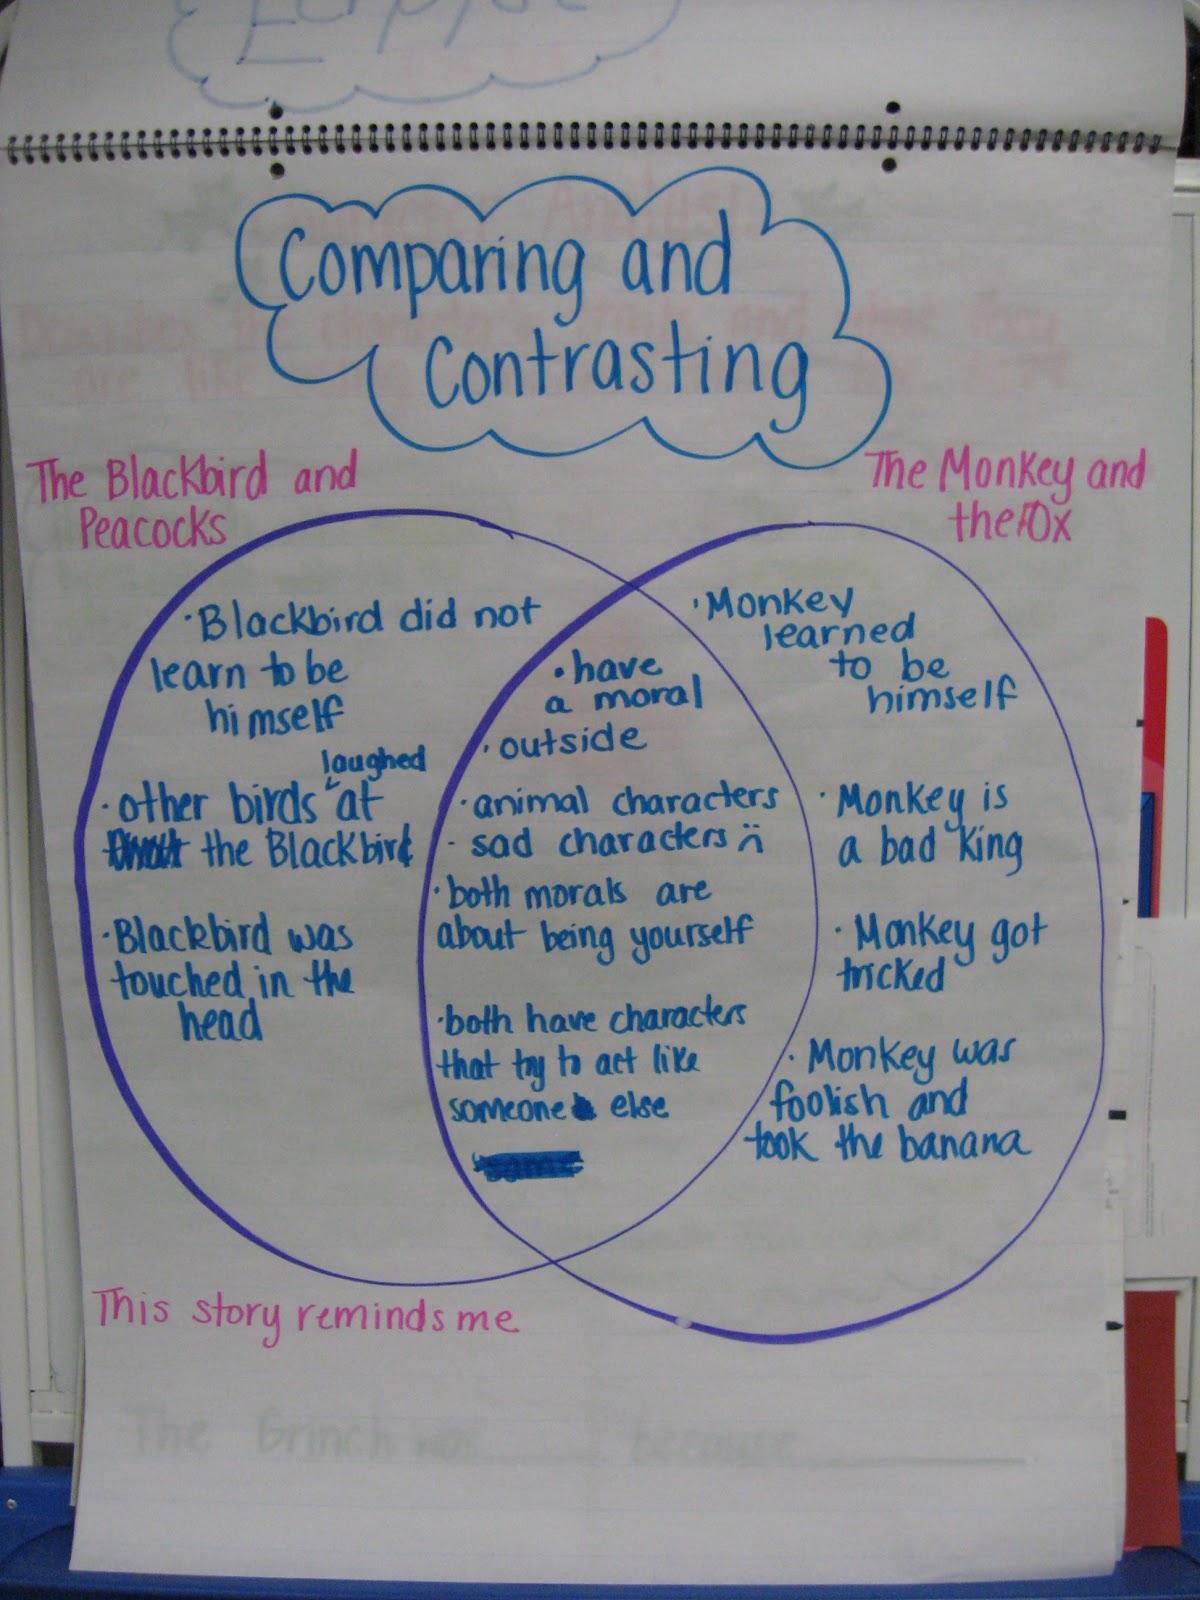 Comparing and
Contrasting
The Blackbird and
Peacocks
The Monkey and
the Fox
· Blackbird did not
learn to be
himself
laughed
· other birds at
the Blackbird
· Blackbird was
touched in the
head
· have
a moral
· outside
· animal characters
· sad characters
· both morals are
about being yourself
· both have characters
that try to act like
someone else
· Monkey
learned
to be
himself
· Monkey is
a bad king
· Monkey got
tricked
· Monkey was
foolish and
took the banana
This story reminds me
The Grinch was because